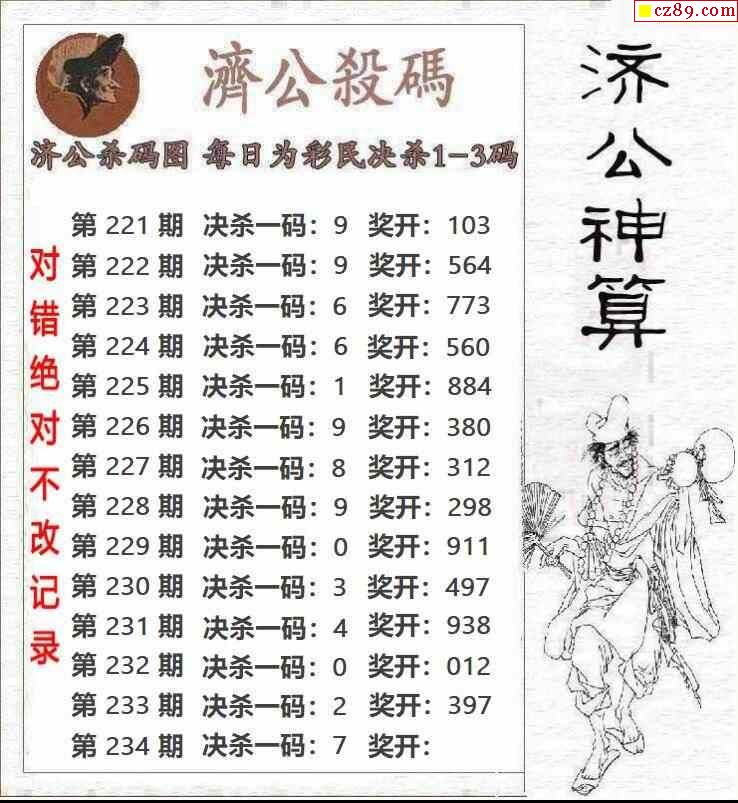 cz89.com
濟公殺碼
济公杀码图 每日为彩民决杀1-3码
第 221 期 决杀一码：9 奖开：103
第 222 期 决杀一码：9 奖开：564
第 223 期 决杀一码：6 奖开：773
第 224 期 决杀一码：6 奖开：560
第 225 期 决杀一码：1 奖开：884
第 226 期 决杀一码：9 奖开：380
第 227 期 决杀一码：8 奖开：312
第 228 期 决杀一码：9 奖开：298
第 229 期 决杀一码：0 奖开：911
第 230 期 决杀一码：3 奖开：497
第 231 期 决杀一码：4 奖开：938
第 232 期 决杀一码：0 奖开：012
第 233 期 决杀一码：2 奖开：397
第 234 期 决杀一码：7 奖开：
对错绝对不改记录
济公神算